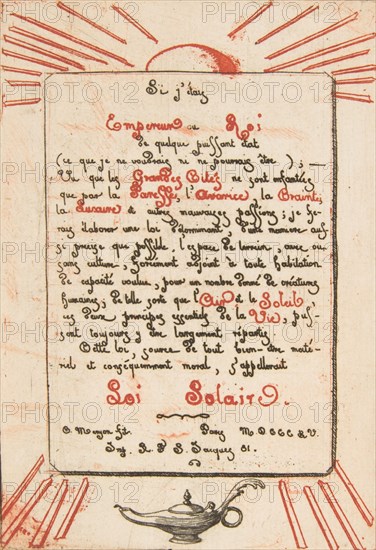 Si j'étais
Empereur ou Roi
de quelque puissant état
(ce que je ne voudrais ni ne pourrais être); —
Vu que les Grandes Cités ne sont enfantées
que par la Paresse, l'Avarice, la Crainte,
la Luxure et autres mauvaises passions; je fe-
rais élaborer une loi déterminant, d'une manière aus-
si précise que possible, l'espace de terrain, avec ou
sans culture, forcément adjoint à toute habitation
de capacité voulue, pour un nombre donné de créatures
humaines; De telle sorte que l'Air et le Soleil
ces deux principes essentiels de la Vie, puis-
sent toujours y être largement répartis.
Cette loi, source de tout bien-être maté-
riel et conséquemment moral, s'appellerait
Loi Solaire.
C. Meryon fit. Paris MDCCCLV.
Imp. R. S. Jacques 81.
PHOTO 12